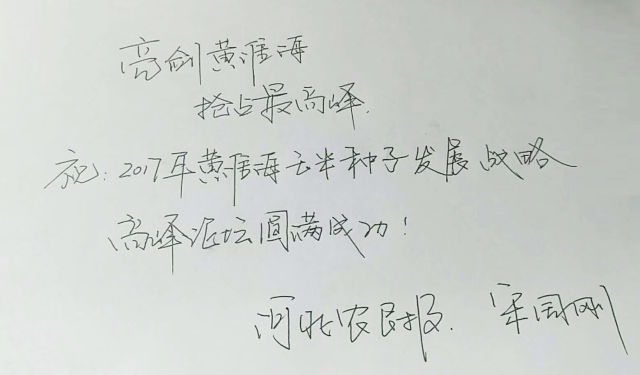 亮剑黄淮海
抢占最高峰.
祝:2017年黄淮海玉米种子发展战略
高峰论坛圆满成功!
河北农民报. 宋国刚